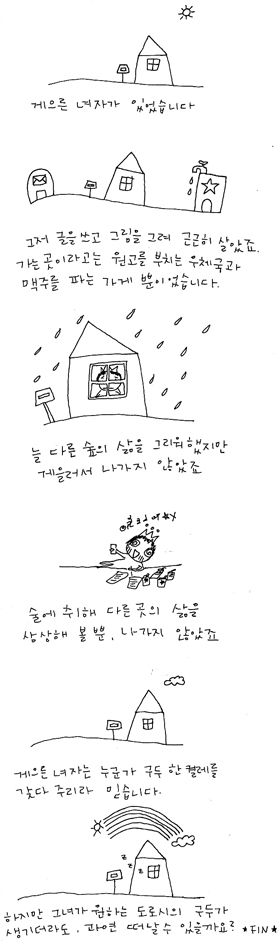 게으른 녀자가 있었습니다
그저 글을 쓰고 그림을 그려 근근히 살았죠.
가는 곳이라고는 원고를 부치는 우체국과
맥주를 파는 가게 뿐이었습니다.
늘 다른 숲의 삶을 그리워했지만
게을러서 나가지 않았죠
술에 취해 다른 곳의 삶을
상상해 볼 뿐, 나가지 않았죠
게으른 녀자는 누군가 구두 한 켤레를
갖다 주리라 믿습니다.
z z z
하지만 그녀가 원하는 도로시의 구두가
생기더라도, 과연 떠날 수 있을까요? *FIN*